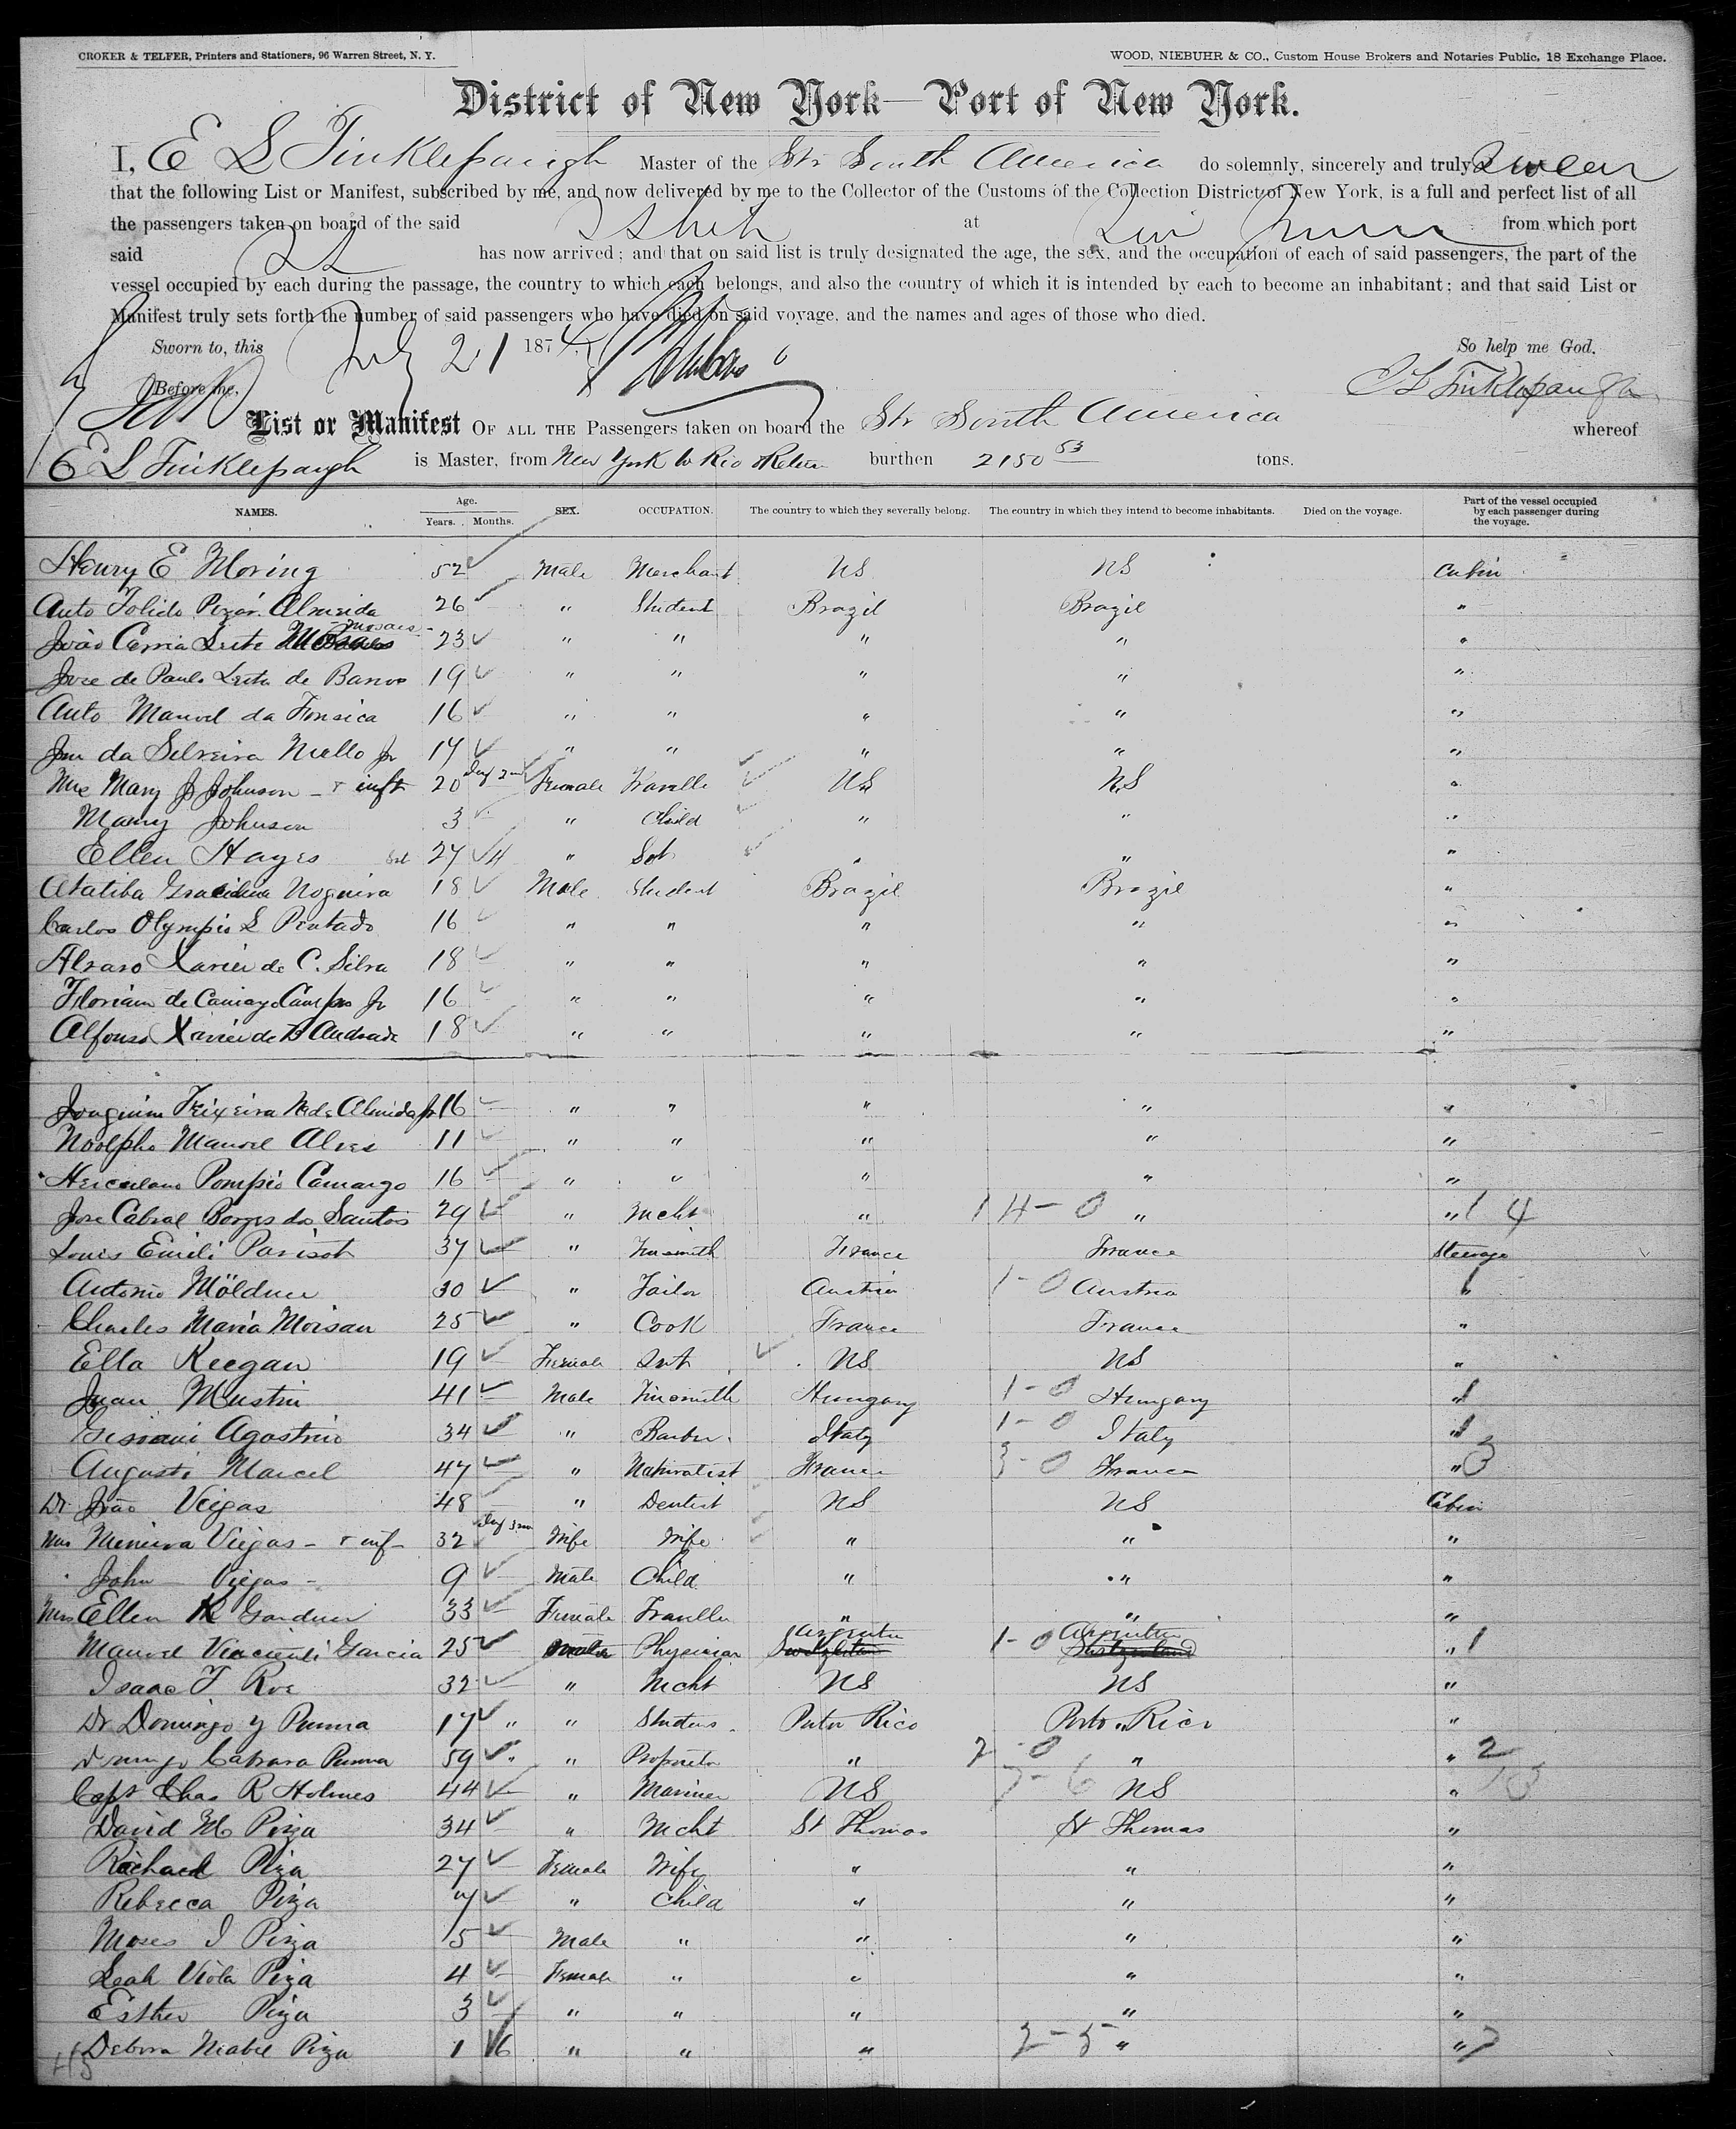 CROKER & TELFER, Printers and Stationers, 96 Warren Street, N. Y.
WOOD, NIEBUHR & CO., Custom House Brokers and Notaries Public, 18 Exchange Place.
District of New York—Port of New York.
I, E L Tinklepaugh Master of the Str South America do solemnly, sincerely and truly swear
that the following List or Manifest, subscribed by me, and now delivered by me to the Collector of the Customs of the Collection District of New York, is a full and perfect list of all
the passengers taken on board of the said at from which port
said has now arrived; and that on said list is truly designated the age, the sex, and the occupation of each of said passengers, the part of the
vessel occupied by each during the passage, the country to which each belongs, and also the country of which it is intended by each to become an inhabitant; and that said List or
Manifest truly sets forth the number of said passengers who have died on said voyage, and the names and ages of those who died.
Sworn to, this July 21 1874, So help me God.
Before me, E L Tinklepaugh
List or Manifest OF ALL THE Passengers taken on board the Str South America whereof
E L Tinklepaugh is Master, from New York to Rio & Return burthen 2150 53 tons.
NAMES. Age. Years. Months. SEX. OCCUPATION. The country to which they severally belong. The country in which they intend to become inhabitants. Died on the voyage. Part of the vessel occupied by each passenger during the voyage.
Henry E Moring 52 Male Merchant US US Cabin
Anto Toledo Almeida 26 " Student Brazil Brazil "
João Leite Moraes 23 " " " " "
Jose de Paula Leite de Barros 19 " " " " "
Anto Manoel da Fonseca 16 " " " " "
da Silveira Mello Jr 17 " " " " "
Mrs Mary J Johnson - & inft 20 Female Traveller US US "
Mamy Johnson 3 " Child " " "
Ellen Hayes 27 " " " "
Ataliba Nogueira 18 Male Student Brazil Brazil "
Carlos Olympio L Pentado 16 " " " " "
Alvaro Xavier de C. Silva 18 " " " " "
Floriam de Camargo Campos Jr 16 " " " " "
Alfonso Xavier de B Andrade 18 " " " " "
Joaquim Teixeira N de Almeida Jr 16 " " " " "
Nodolpho Manoel Alves 11 " " " " "
Herculano Pompio Camargo 16 " " " " "
Jose Cabral Borges dos Santos 29 " Mcht " 14-0 " " 14
Louis Emili Parisot 37 " Tinsmith France France Steerage
Antonio Möldner 30 " Tailor Austria 1-0 Austria " 1
Charles Maria Moisan 25 " Cook France France "
Ella Keegan 19 Female Svt US US "
Juan Mustin 41 Male Tinsmith Hungary 1-0 Hungary " 1
Agostino 34 " Barber Italy 1-0 Italy " 1
Auguste Marcel 47 " Naturalist France 3-0 France " 3
Dr João Viegas 48 " Dentist US US Cabin
Mrs Viegas - & inf 32 Wife Wife " " "
John Viegas - 9 Male Child " " "
Mrs Ellen K Gardner 33 Female Traveller " " "
Manoel Garcia 25 Male Physician Argentin 1-0 Argentin " 1
Isaac T Roe 32 " Mcht US US "
Dr Domingo y 17 " " Student Porto Rico Porto Rico "
Domingo 59 " " Proprietor " 2-0 " " 2
Capt Chas R Holmes 44 " Mariner US 7-6 US " 13
David M Piza 34 " Mcht St Thomas St Thomas "
Rachael Piza 27 Female Wife " " "
Rebecca Piza 7 " Child " " "
Moses J Piza 5 Male " " " "
Leah Viola Piza 4 Female " " " "
Esther Piza 3 " " " " "
Debora Mabel Piza 1 6 " " " 2-5 " " 7
45